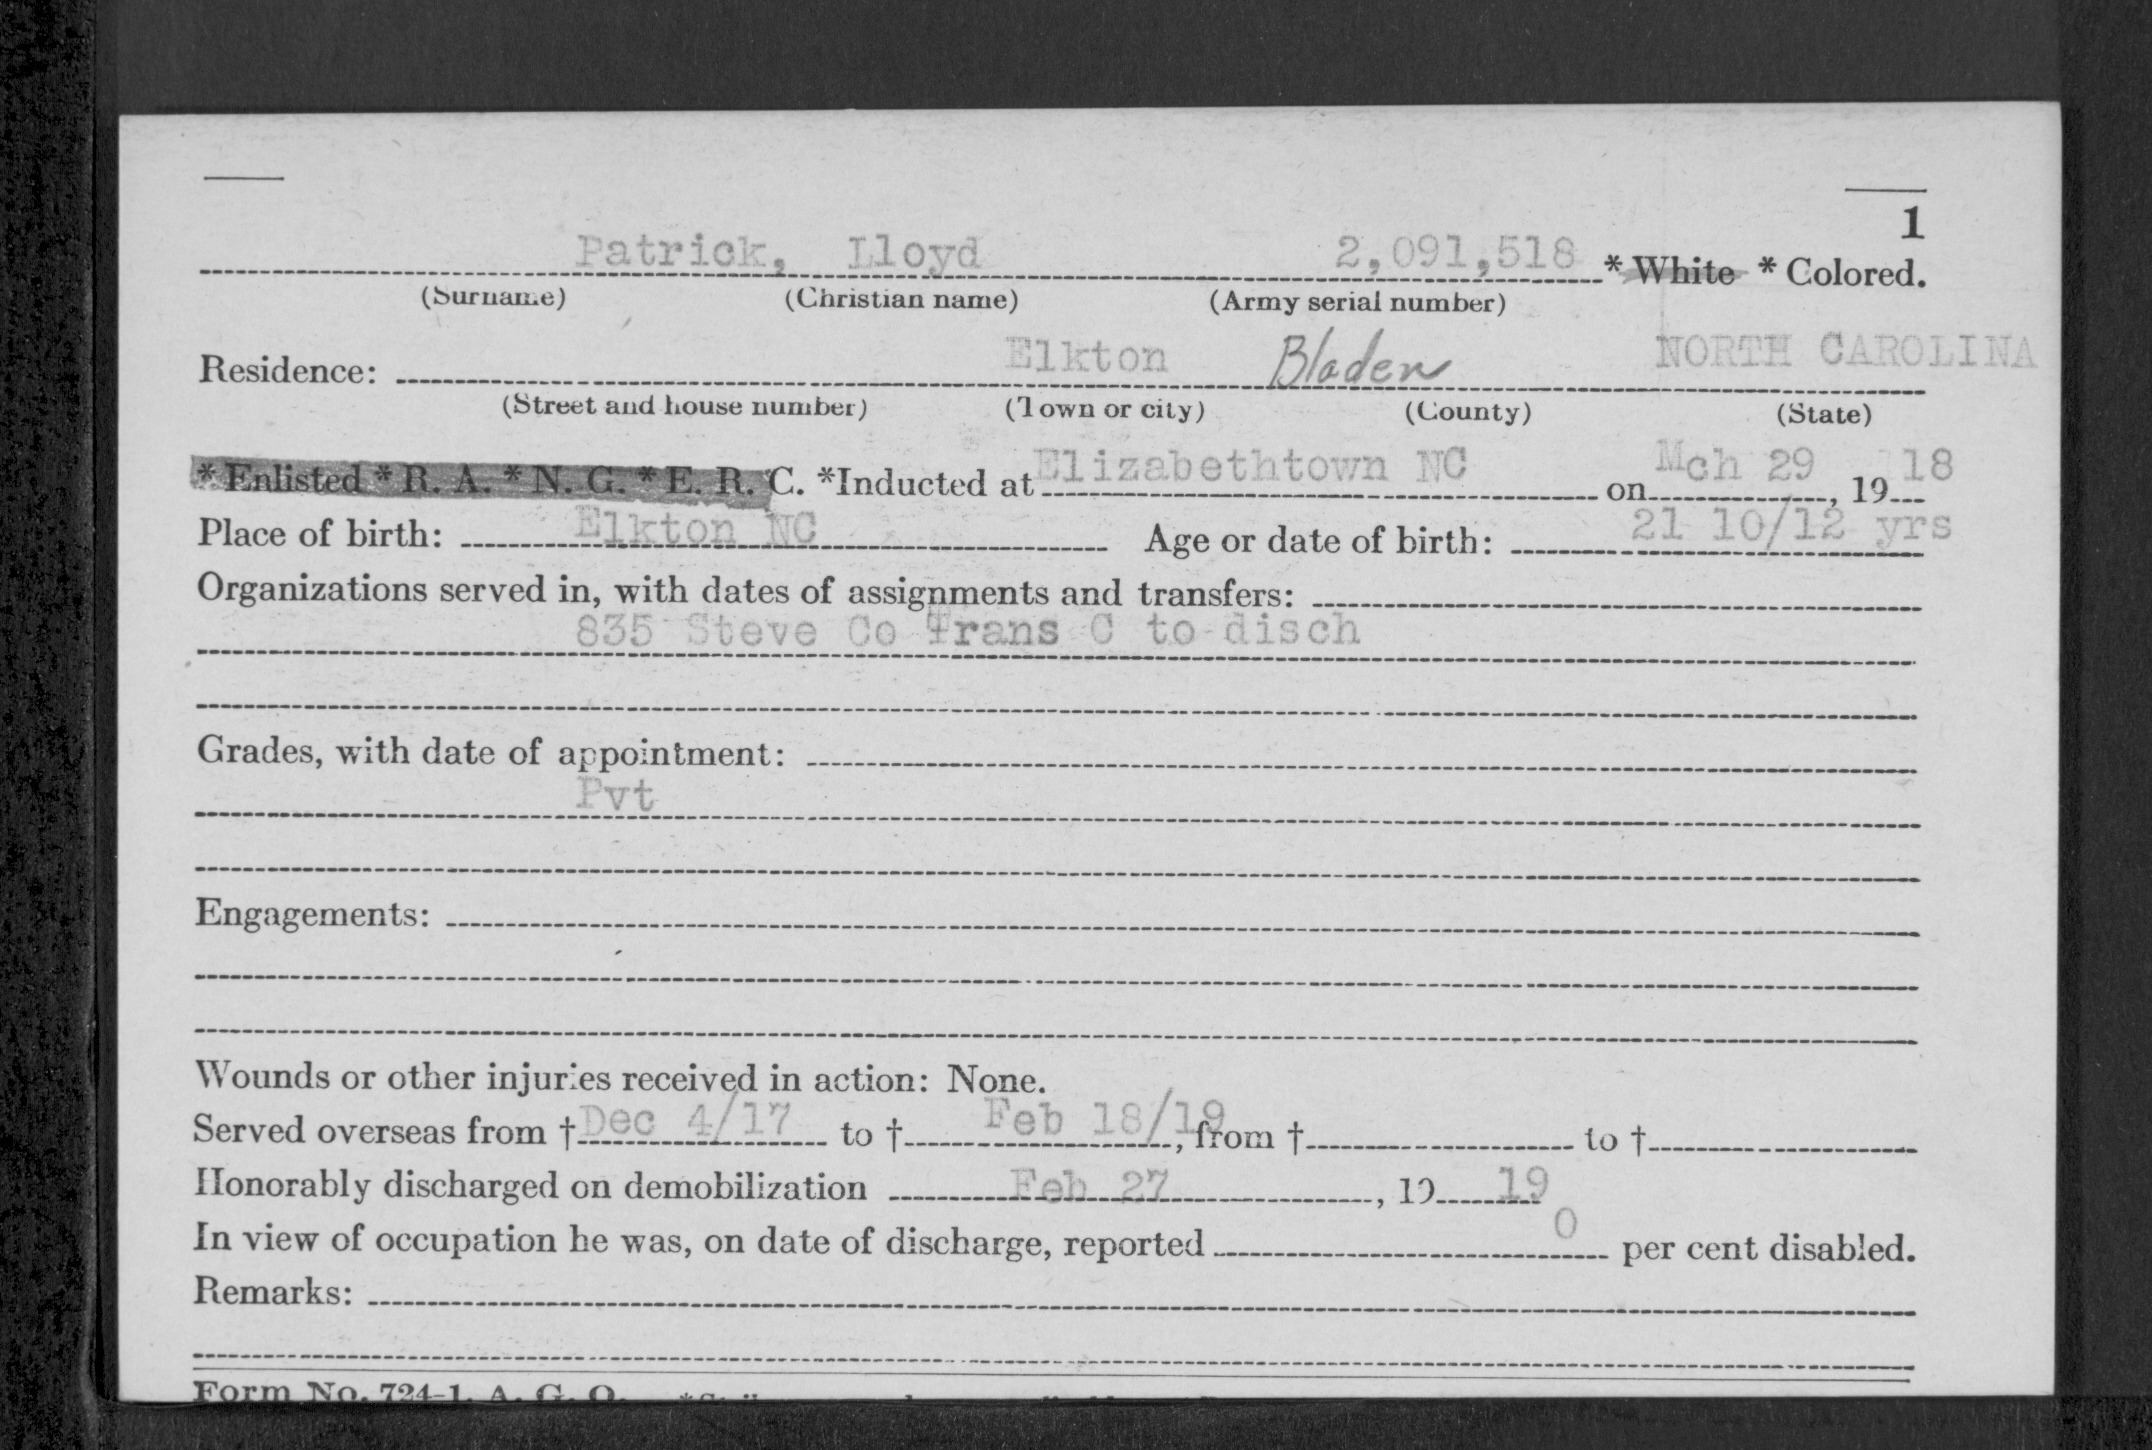 1
Patrick, Lloyd 2,091,518 * White * Colored.
(Surname) (Christian name) (Army serial number)
Residence: Elkton Bladen NORTH CAROLINA
(Street and house number) (Town or city) (County) (State)
* Enlisted * R. A. * N. G. * E. R. C. *Inducted at Elizabethtown NC on Mch 29, 1918
Place of birth: Elkton NC Age or date of birth: 21 10/12 yrs
Organizations served in, with dates of assignments and transfers:
835 Steve Co Trans C to disch
Grades, with date of appointment:
Pvt
Engagements:
Wounds or other injuries received in action: None.
Served overseas from † Dec 4/17 to † Feb 18/19, from † to †
Honorably discharged on demobilization Feb 27, 19 19
In view of occupation he was, on date of discharge, reported 0 per cent disabled.
Remarks:
Form No. 724-1, A. G. O.